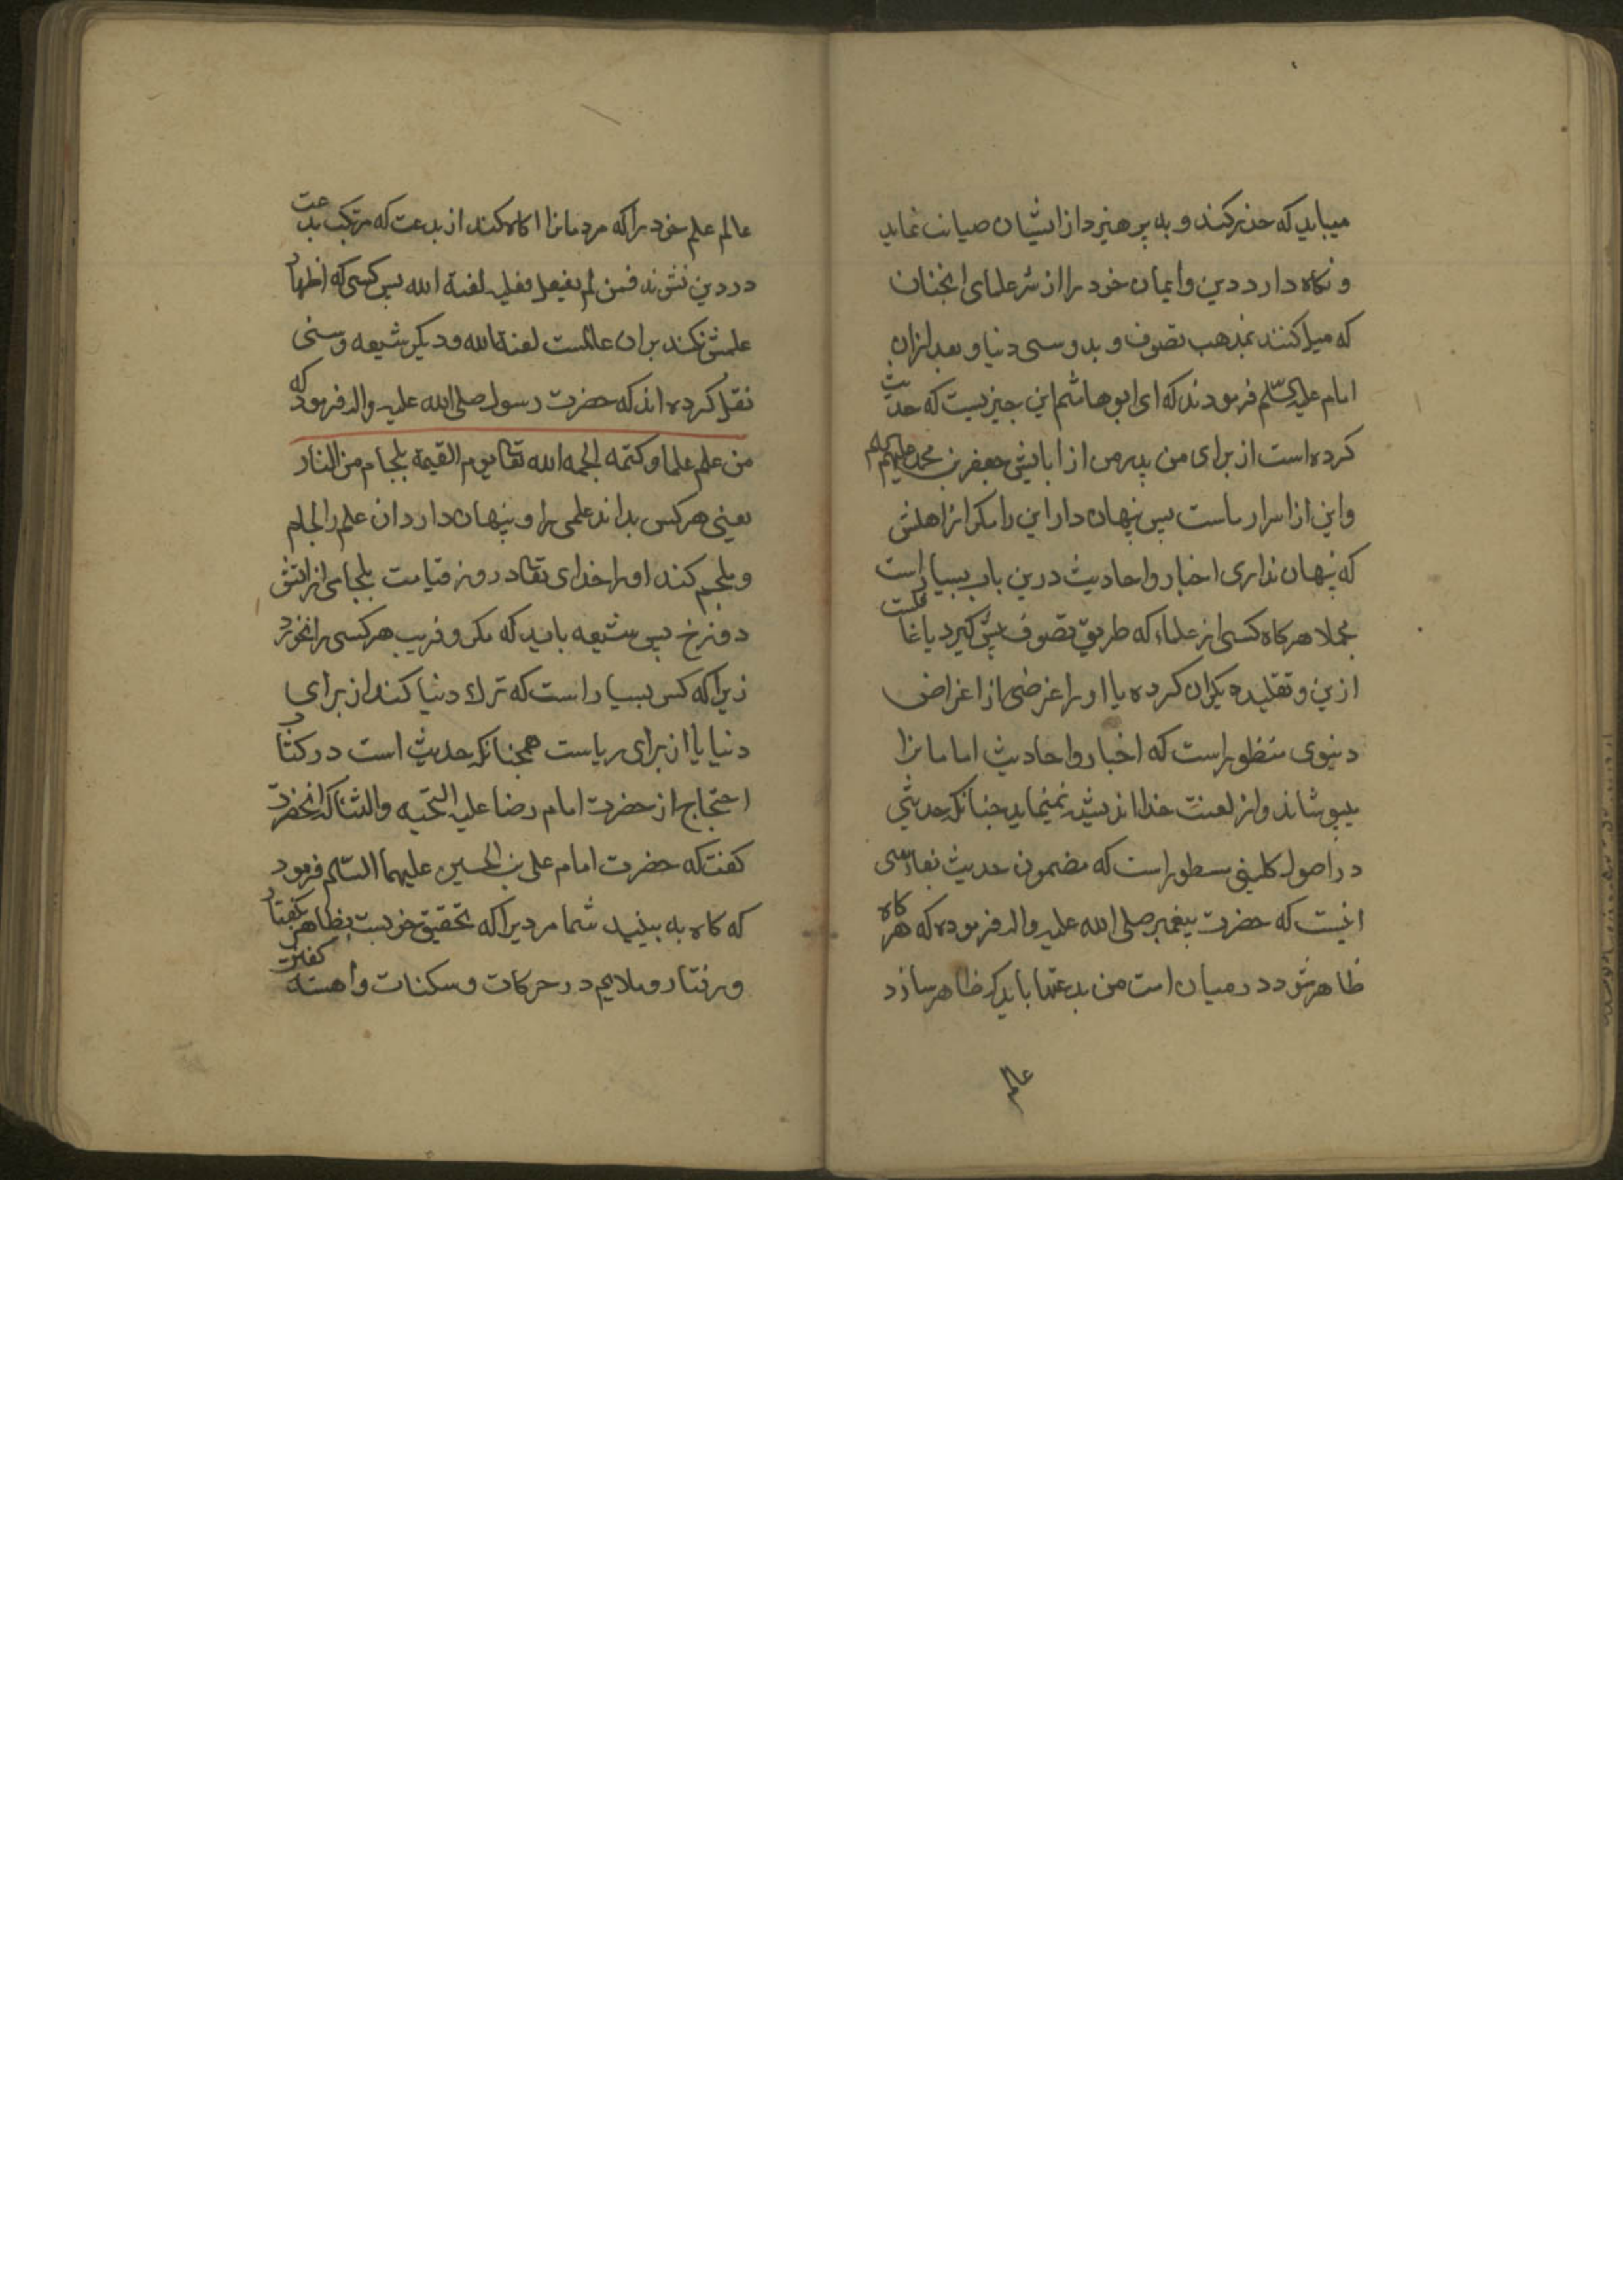 میباید که حذر کند و به پرهیزد از ایشان صیانت نماید
و نکاه دارد دین و ایمان خود را از شر علمای انجنان
که میل کنند بمذهب تصوف و بدوستی دنیا و بعد از ان
امام علیه السلم فرمودند که ای ابو هاشم این چیزیست که حدیث
کرده است از برای من پدر من از ابایش جعفر بن محمد علیهم السلم
و این از اسرار ماست پس پنهان دار این را مکر از اهلش
که پنهان نداری اخبار و احادیث درین باب بسیار است
مجملا هرکاه کسی از علماء که طریق تصوف پیش کیرد یا غافلست
ازین و تقلید دیکران کرده یا او را غرضی از اغراض
دنیوی منظور است که اخبار و احادیث امامانرا
میپوشاند و از لعنت خدا اندیشه نمینماید چنانکه حدیثی
در اصول کلینی مسطور است که مضمون حدیث بفارسی
اینست که حضرت پیغمبر صلی الله علیه واله فرموده که هرکاه
ظاهر شود در میان امت من بدعتها باید که ظاهر سازد
عالم
عالم علم خود را که مردمانرا اکاه کند از بدعت که مرتکب بدعت
در دین نشوند فمن لم یفعل فعلیه لعنة الله پس کسی که اظهار
علمش نکند بران عالمست لعنة الله و دیکر شیعه و سنی
نقل کرده اند که حضرت رسول صلی الله علیه واله فرمود که
من علم علما و کتمه الجمه الله تعالی یوم القیمة بلجام من النار
یعنی هر کس بداند علمی را و پنهان دارد ان علم را لجام
و ملجم کند او را خدای تعالی در روز قیامت بلجامی از اتش
دوزخ پس شیعه باید که مکر و فریب هر کسی را نخورد
زیرا که کس بسیار است که ترك دنیا کند از برای
دنیا یا از برای ریاست همچنانکه حدیث است در کتاب
احتجاج از حضرت امام رضا علیه التحیه والثنا که انحضرت
کفت که حضرت امام علی بن الحسین علیهما السلم فرمود
که کاه به بینید شما مردیرا که بتحقیق خوبست بظاهر کفتار
و رفتار و ملایم در حرکات و سکنات و اهسته کفتن